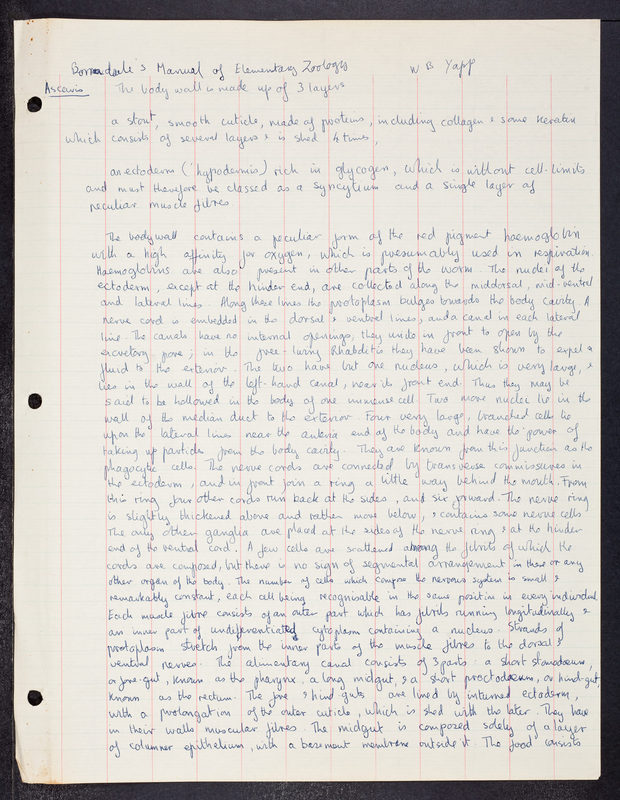 Borradaile's Manual of Elementary Zoology W B Yapp
Ascaris The body wall is made up of 3 layers
a stout, smooth cuticle, made of proteins, including collagen & some keratin
which consists of several layers & is shed 4 times,
an ectoderm ('hypodermis) rich in glycogen, which is without cell-limits
and must therefore be classed as a syncytium and a single layer of
peculiar muscle fibres
The bodywall contains a peculiar form of the red pigment haemoglobin
with a high affinity for oxygen, which is presumably used in respiration.
Haemoglobins are also present in other parts of the worm. The nuclei of the
ectoderm, except at the hinder end, are collected along the middorsal, mid-ventral
and lateral lines. Along these lines the protoplasm bulges towards the body cavity. A
nerve cord is embedded in the dorsal & ventral lines, and a canal in each lateral
line. The canals have no internal openings, they unite in front to open by the
excretory pore; in the free-living Rhabditis they have been shown to expel a
fluid to the exterior. The two have but one nucleus, which is very large, &
lies in the wall of the left-hand canal, near its front end. Thus they may be
said to be hollowed in the body of one immense cell. Two more nuclei lie in the
wall of the median duct to the exterior. Four very large, branched cells lie
upon the lateral lines near the anterior end of the body and have the power of
taking up particles from the body cavity. They are known from this function as the
phagocytic cells. The nerve cords are connected by transverse commissures in
the ectoderm, and in front join a ring a little way behind the mouth. From
this ring four other cords run back at the sides, and six forward. The nerve ring
is slightly thickened above and rather more below, & contains some nerve cells.
The only other ganglia are placed at the sides of the nerve ring & at the hinder
end of the ventral cord. A few cells are scattered among the fibrils of which the
cords are composed, but there is no sign of segmental arrangement in these or any
other organ of the body. The number of cells which compose the nervous system is small &
remarkably constant, each cell being recognisable in the same position in every individual.
Each muscle fibre consists of an outer part which has fibrils running longitudinally &
an inner part of undifferentiated cytoplasm containing a nucleus. Strands of
protoplasm stretch from the inner parts of the muscle fibres to the dorsal &
ventral nerves. The alimentary canal consists of 3 parts: a short stomodaeum,
or fore-gut, known as the pharynx, a long midgut, & a short proctodaeum, or hind-gut,
known as the rectum. The fore & hind guts are lined by inturned ectoderm,
with a prolongation of the outer cuticle, which is shed with the later. They have
in their walls muscular fibres. The midgut is composed solely of a layer
of columner epithelium, with a basement membrane outside it. The food consists